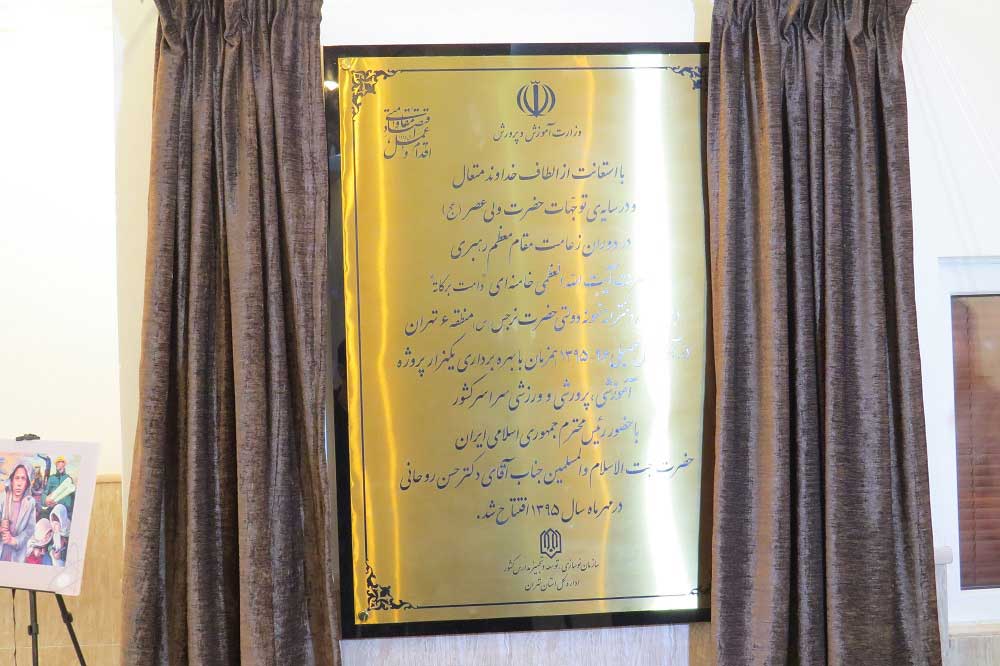 اقتصاد مقاومتی
اقدام و عمل
وزارت آموزش و پرورش
با استعانت از الطاف خداوند متعال
و در سایه‌ی توجّهات حضرت ولی عصر (عج)
در دوران زعامت مقام معظم رهبری
آیت الله العظمی خامنه ای "دامت برکاته"
دخترانه نمونه دولتی حضرت نرجس (س) منطقه ۶ تهران
۱۳۹۵ همزمان با بهره برداری یکهزار پروژه
آموزشی، پرورشی و ورزشی سراسر کشور
با حضور رئیس محترم جمهوری اسلامی ایران
حضرت حجت الاسلام والمسلمین جناب آقای دکتر حسن روحانی
در مهرماه سال ۱۳۹۵ افتتاح شد.
سازمان نوسازی، توسعه و تجهیز مدارس کشور
اداره کل استان تهران